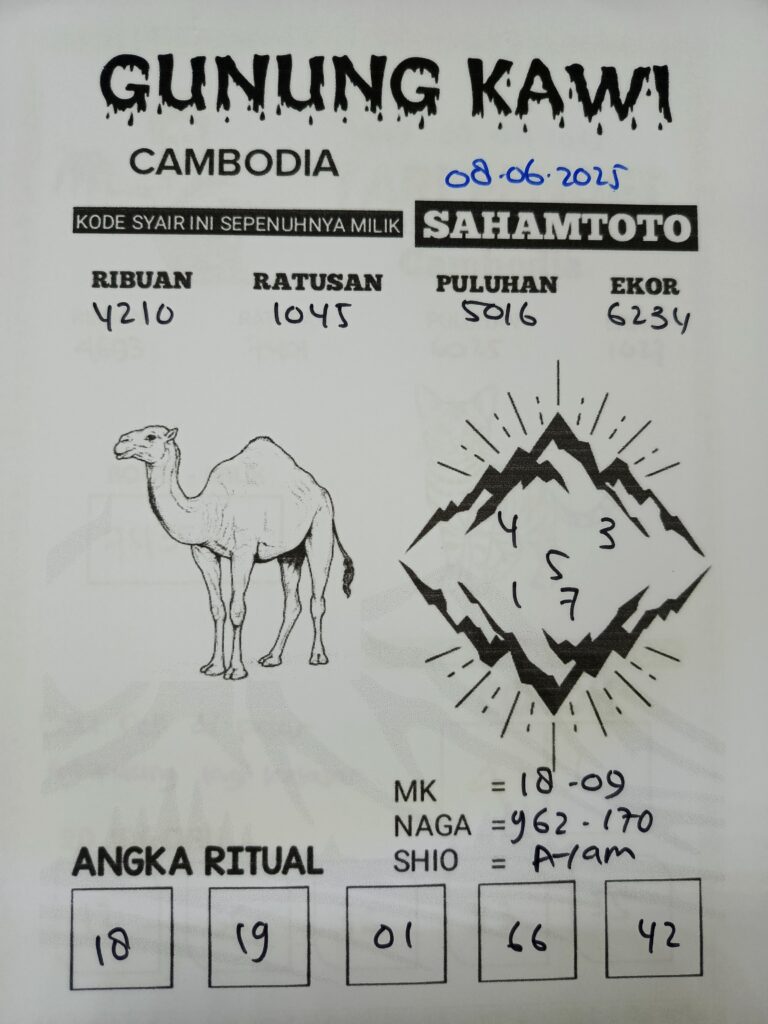 GUNUNG KAWI
CAMBODIA 08.06.2025
KODE SYAIR INI SEPENUHNYA MILIK SAHAMTOTO
RIBUAN RATUSAN PULUHAN EKOR
4210 1045 5016 6234
4 3
5
1 7
MK = 18-09
NAGA = 962-170
SHIO = Ayam
ANGKA RITUAL
18 19 01 66 42